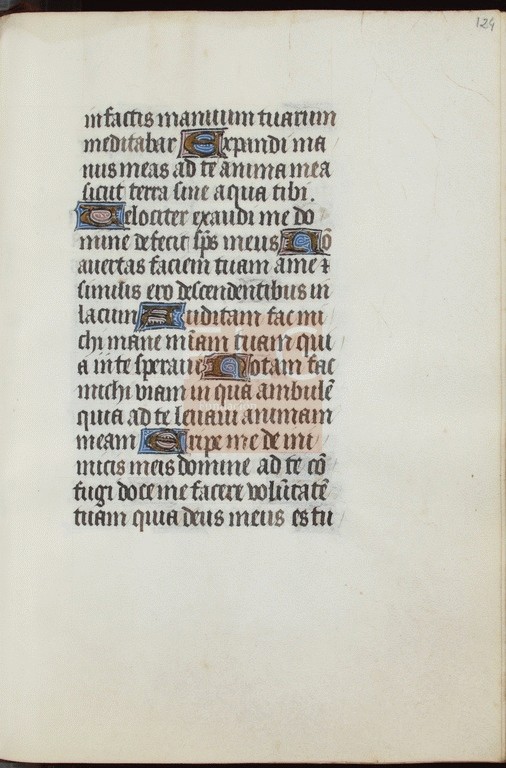 124
in factis manuum tuarum
meditabar Expandi ma
nus meas ad te anima mea
sicut terra sine aqua tibi.
Velociter exaudi me do
mine defecit sp̄s meus Nō
auertas faciem tuam a me ⁊
similis ero descendentibus in
lacum Auditam fac mi
chi mane mīam tuam qui
a in te speraui Notam fac
michi viam in qua ambulē
quia ad te leuaui animam
meam Eripe me de ini
micis meis domine ad te cō
fugi doce me facere volūtatē
tuam quia deus meus es tu